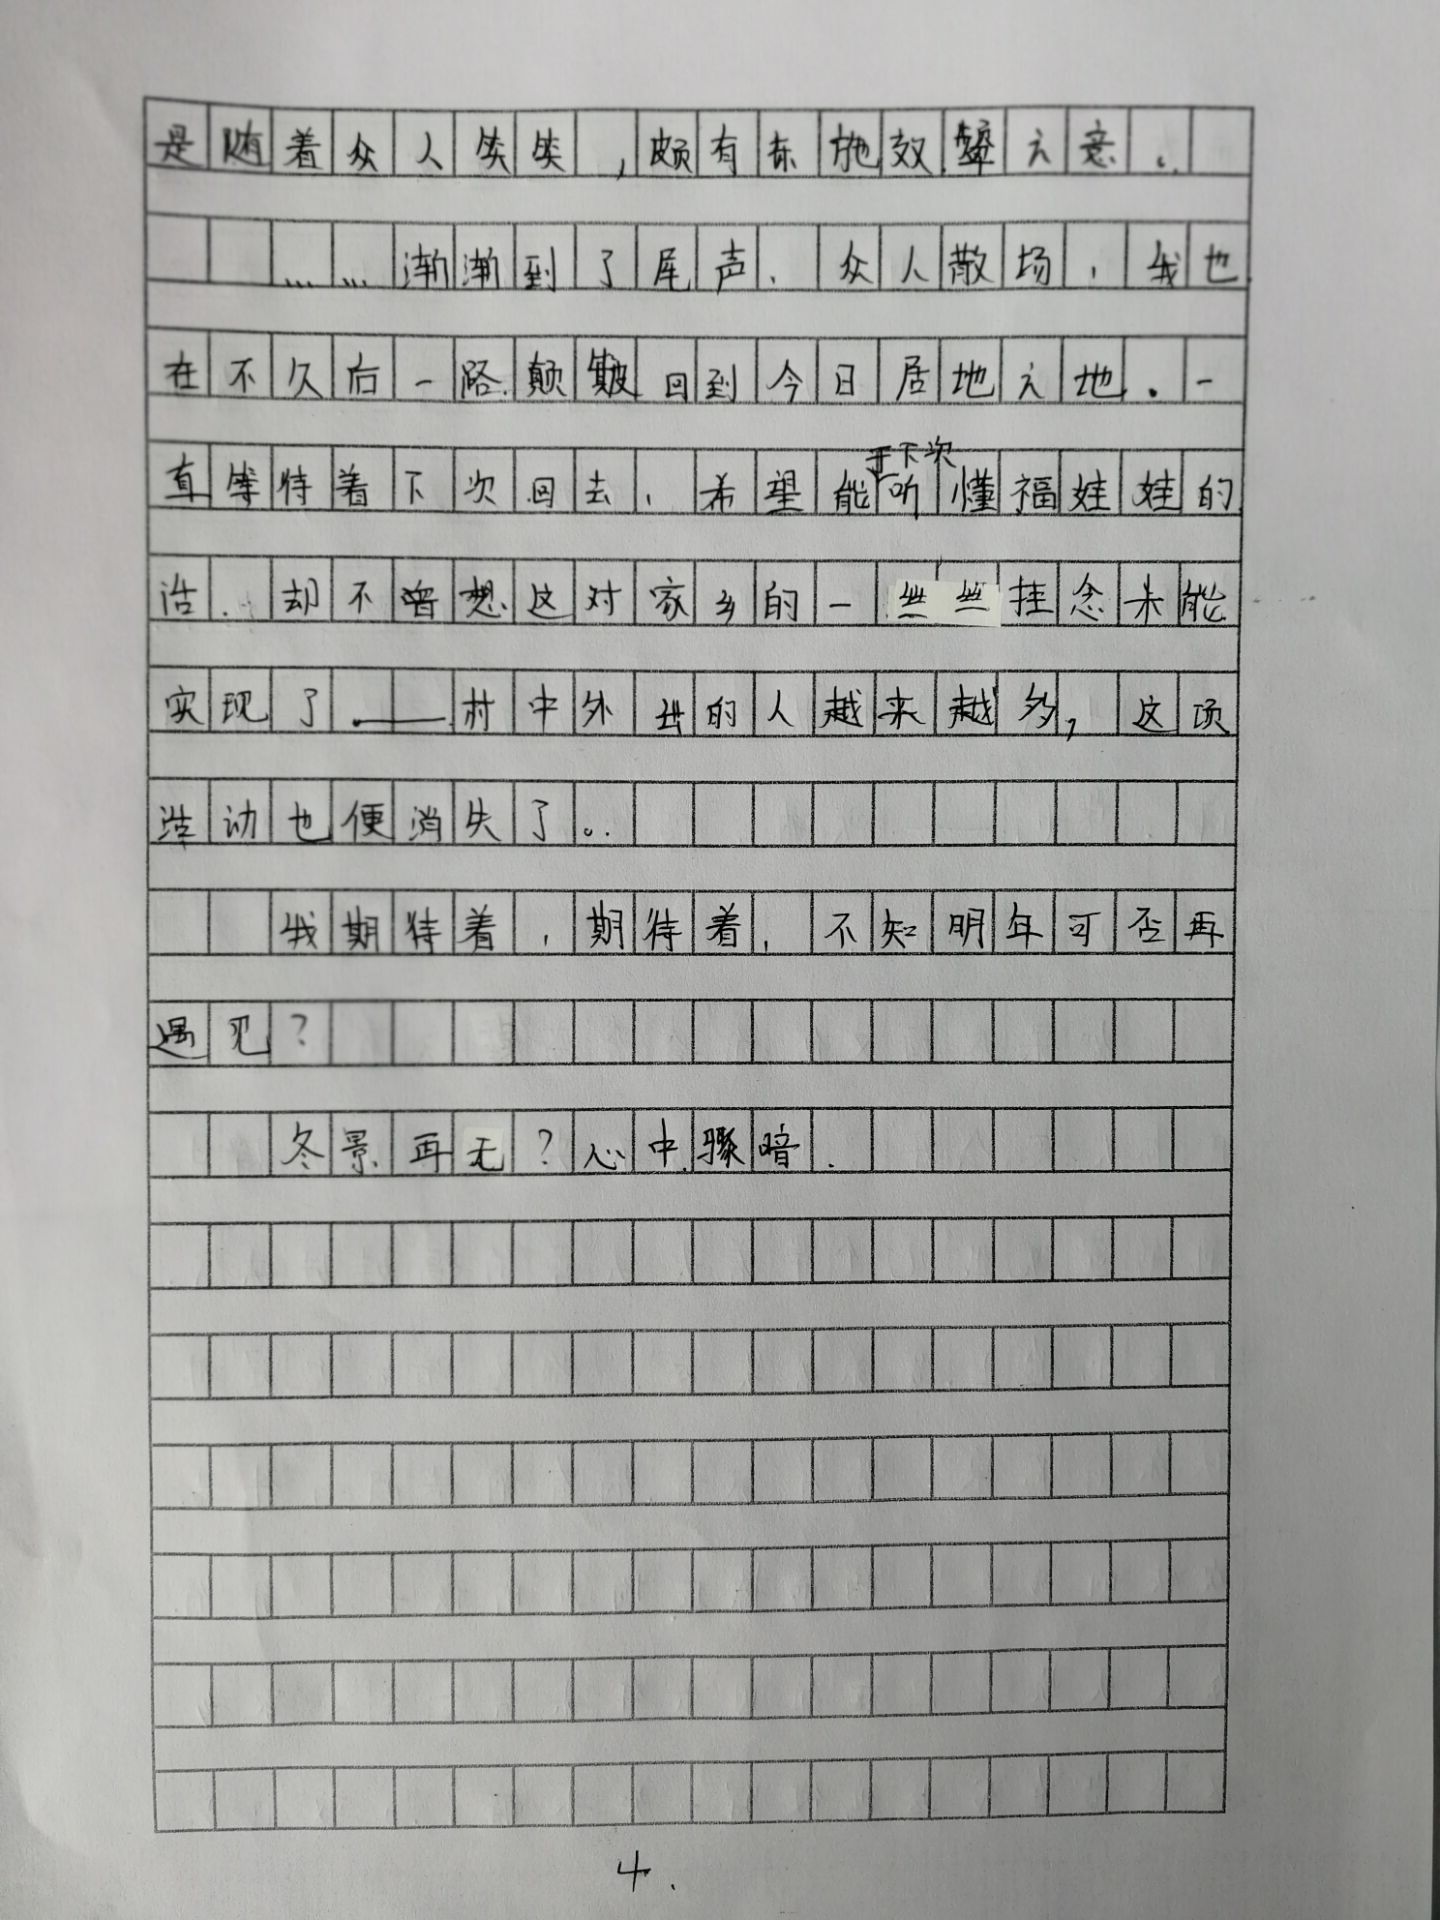 是随着众人笑笑,颇有东施效颦之意。
……渐渐到了尾声,众人散场,我也
在不久后一路颠簸回到今日居地之地.一
直等待着下次回去,希望能于下次听懂福娃娃的
话.却不曾想这对家乡的一丝丝挂念未能
实现了.——村中外出的人越来越多,这项
活动也便消失了。
我期待着,期待着,不知明年可否再
遇见?
冬景再无?心中骤暗.
4.